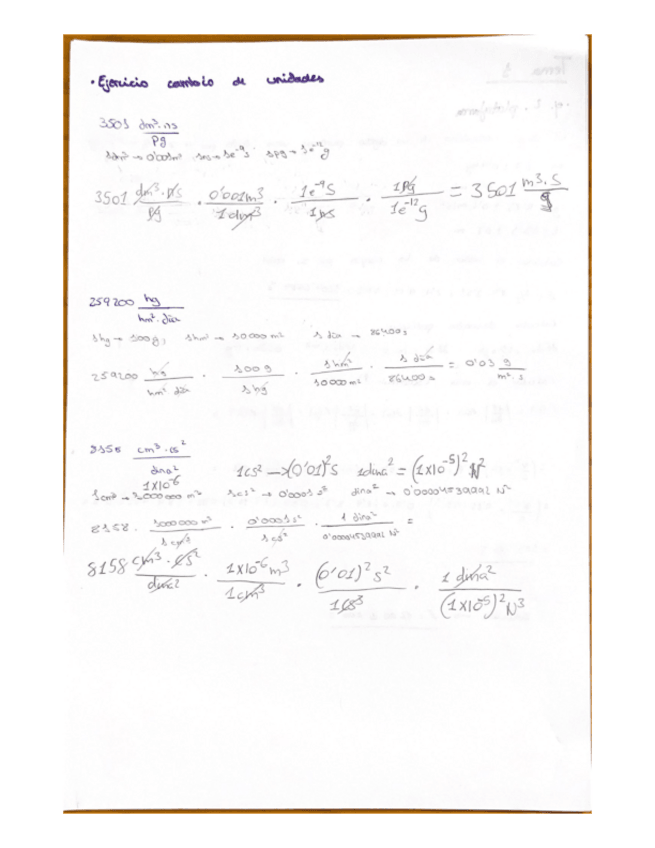 · Ejercicio cambio de unidades
3501 dm³·ns / pg
1dm³ → 0'001m³ 1ns → 1e⁻⁹s 1pg → 1e⁻¹²g
3501 dm³·ns / pg · 0'001m3 / 1dm3 · 1e⁻⁹s / 1ns · 1pg / 1e⁻¹²g = 3501 m3·s / g
259200 hg / hm²·día
1hg → 100g, 1hm² → 10000 m² 1 día → 86400s
259200 hg / hm²·día · 100 g / 1 hg · 1 hm² / 10000 m² · 1 día / 86400 s = 0'03 g / m²·s
8158 cm³·cs² / dina²
1cs² → (0'01)²s 1dina² = (1x10⁻⁵)² N²
1x10⁻⁶
1cm³ → 1000000 m³ 1cs² → 0'0001 s² dina² → N²
8158 · 1000000 m³ / 1 cm³ · 0'0001s² / 1 cs² · 1 dina² / N² =
8158 cm³·cs² / dina² · 1x10⁻⁶m3 / 1cm³ · (0'01)² s² / 1cs³ · 1 dina² / (1x10⁻⁵)² N3